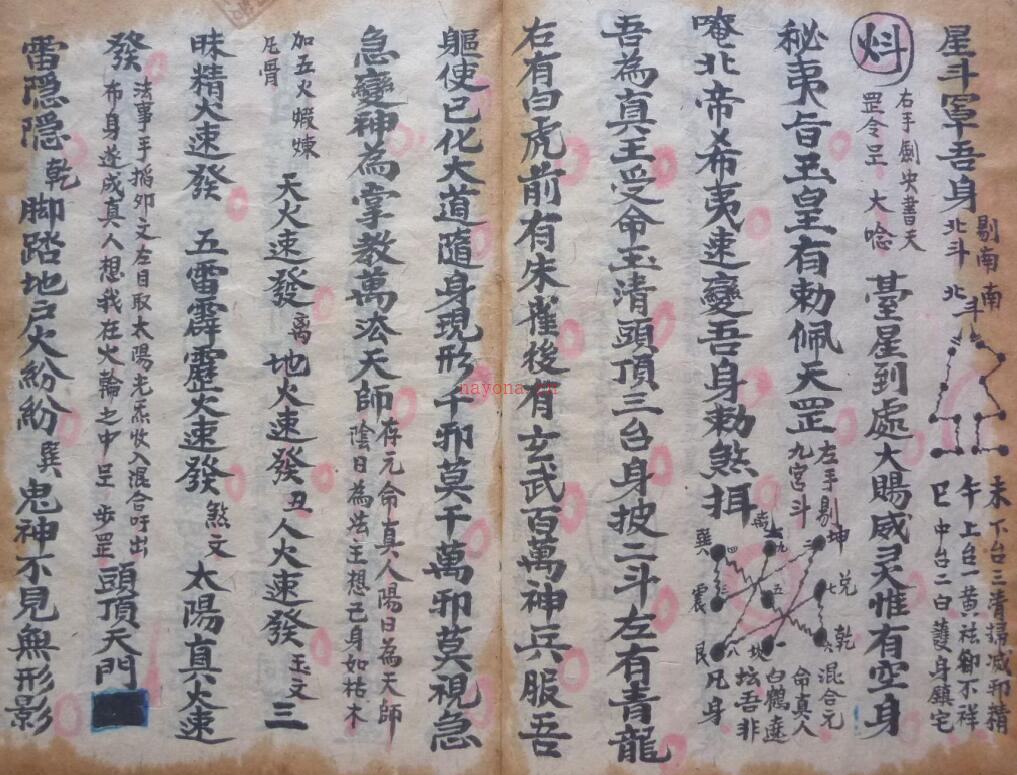 星斗罩吾身
剔南南
北斗北斗
未下台三清掃滅邪精
午上台一黄祛卻不祥
巳中台二白護身鎮宅
右手劍央書天
罡令呈大唸
臺星到處大賜威灵惟有空身
秘夷旨玉皇有勅佩天罡
左手剔
九宮斗
坤
兌
乾
离
坎
巽
震
艮
四
九
二
三
五
七
八
六
混合元
命真人
白鶴遶
坛吾非
凡身
唵北帝㐅希夷速變吾身勅煞挕
吾為真王受命玉清頭頂三台身披二斗左有青龍
右有白虎前有朱雀後有玄武百萬神兵服吾
軀使已化大道隨身現形千邪莫干萬邪莫視急
急變神為掌教萬法天師
存元命真人陽日為天師
陰日為法王想己身如枯木
加五火煆煉
凡骨
天火速發
离
地火速發
丑
人火速發
玉文
三
昧精火速發
五雷霹靂火速發
煞文
太陽真火速
發
法事手掐卯文左目取太陽光炁收入混合吁出
布身遂成真人想我在火輪之中呈步罡
頭頂天門
雷隱隱
乾
脚踏地户火紛紛
巽
鬼神不見無形影
nayona.cn